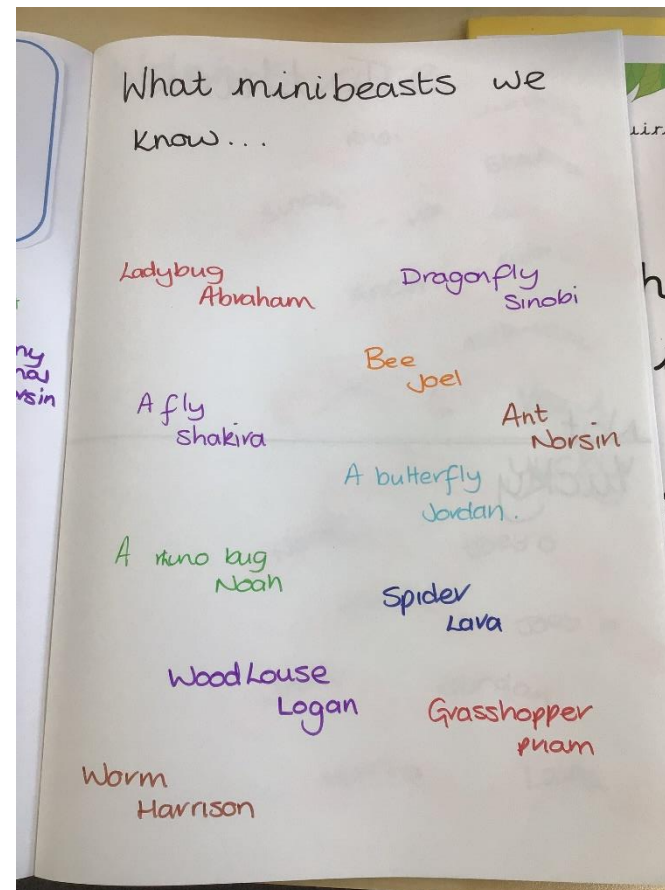 What minibeasts we
know...
Ladybug
Abraham
Dragonfly
Sinobi
Bee
Joel
A fly
Shakira
Ant
Norsin
A butterfly
Jordan.
A rhino bug
Noah
Spider
Lava
WoodLouse
Logan
Grasshopper
Worm
Harrison